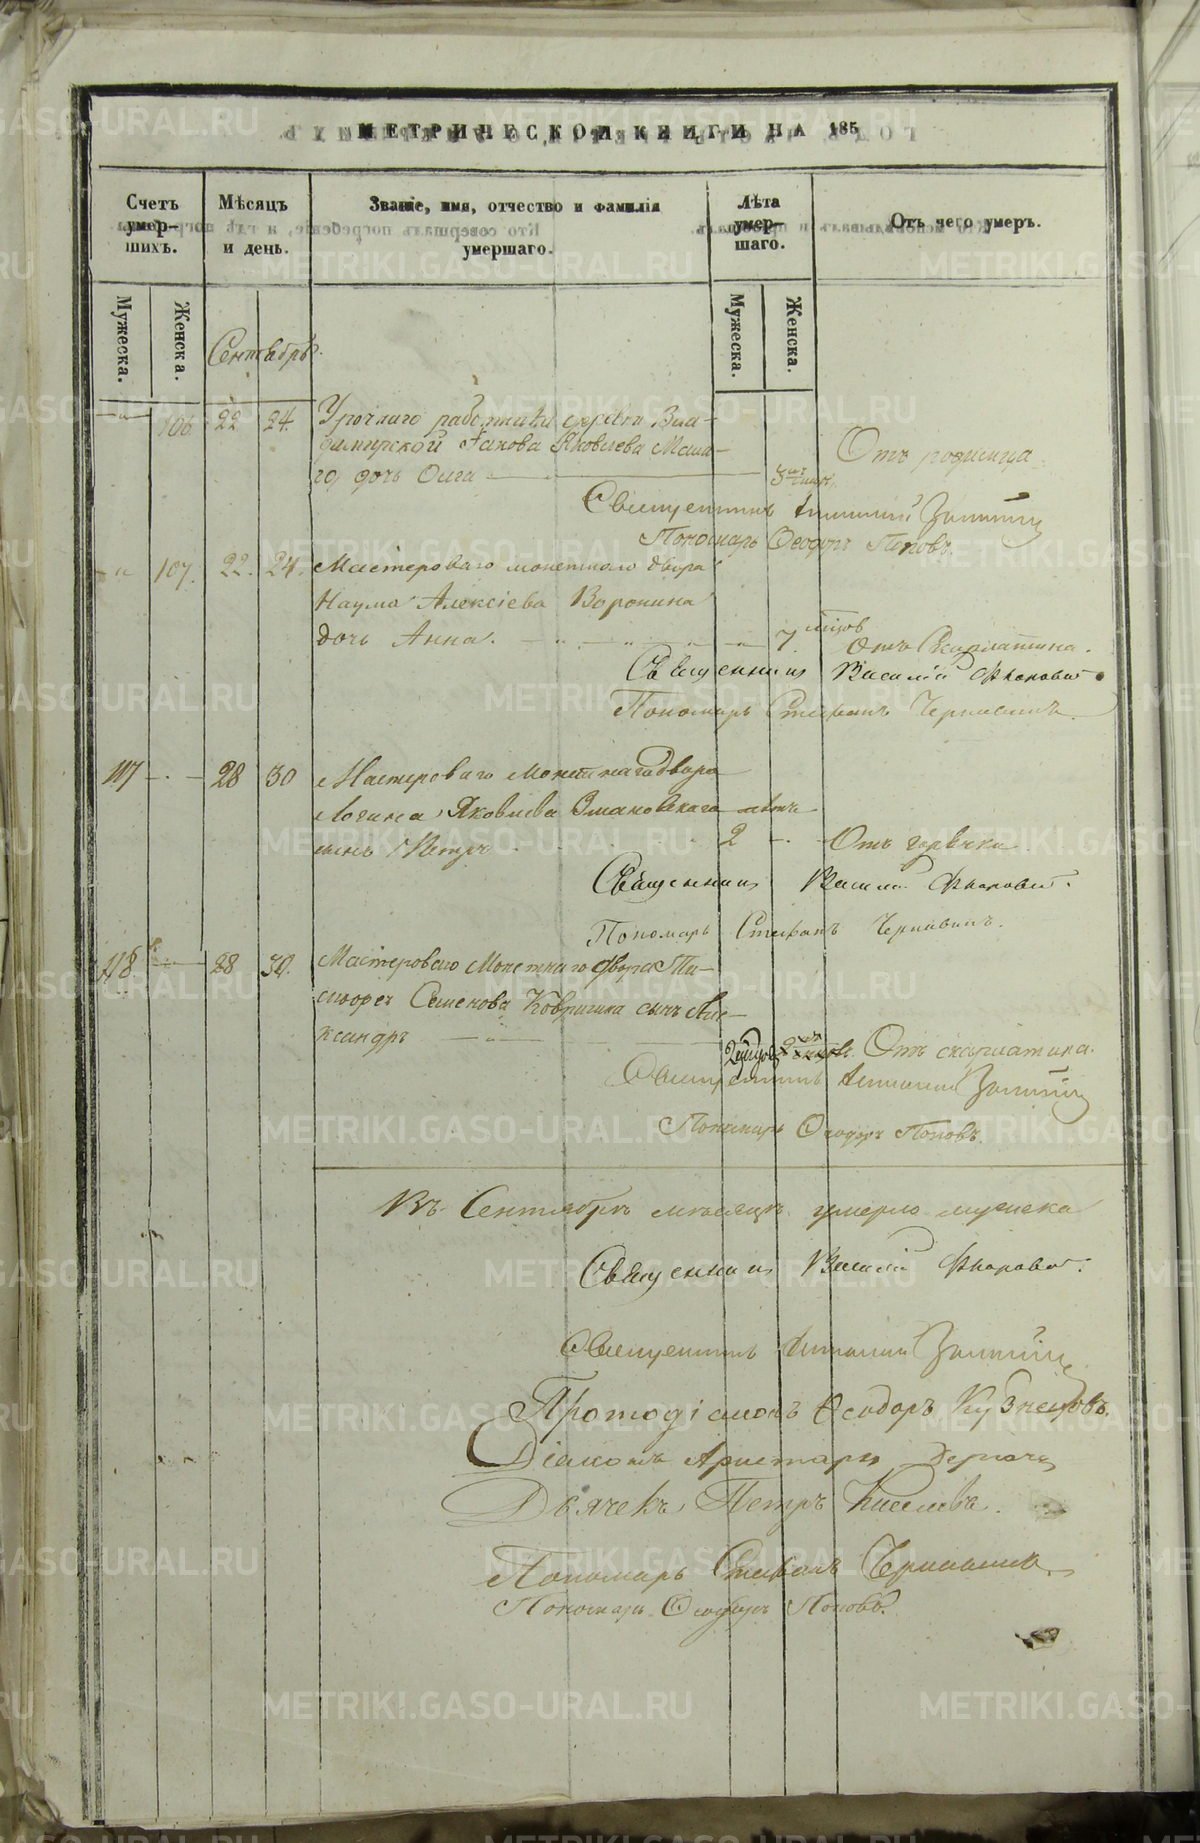 МЕТРИЧЕСКОЙ КНИГИ НА 185
Счетъ умер- шихъ.
Мѣсяцъ и день.
Званіе, имя, отчество и фамилія умершаго.
Лѣта умер- шаго.
Отъ чего умеръ.
Мужеска.
Женска.
Мужеска.
Женска.
Сентябрь.
106. 22 24. Урочнаго работника деревни Вла-
димирской Іакова Яковлева
го дочь Олга
Отъ родимца
Священникъ Антоній
Пономарь Ѳеодоръ Поповъ.
107. 22. 24. Мастероваго монетнаго двора
Наума Алексіева Воронина
дочь Анна. 7. мцов Отъ Скарлатина.
Священникъ Василій
Пономарь Стефанъ Чернавинъ
117 28 30 Мастероваго Монетнаго двора
Логина Яковлева лѣтъ
сынъ Петръ 2 Отъ горячки
Священникъ Василій
Пономарь Стефанъ Чернавинъ.
118. 28 30. Мастероваго Монетнаго двора Ни-
Семенова Ковригина сынъ Але-
ксандръ Отъ скарлатина.
Священникъ Антоній
Пономарь Ѳеодоръ Поповъ.
Въ Сентябрѣ мѣсяцѣ умерло мужеска
Священникъ Василій
Священникъ Антоній
Протодіаконъ Ѳеодоръ Кузнецовъ.
Діаконъ Аристархъ
Дьячекъ Петръ Киселевъ.
Пономарь Стефанъ Чернавинъ
Пономарь Ѳеодоръ Поповъ.
METRIKI.GASO-URAL.RU